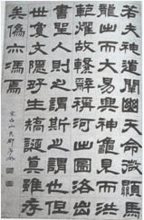 夫神道闡幽天命微顯馬
龍出而大易興神龜見而洪
範燿故繫辭稱河出圖洛出
書聖人則之斯之謂也但
世夐文隱好生矯誕真雖存
矣僞亦馮焉